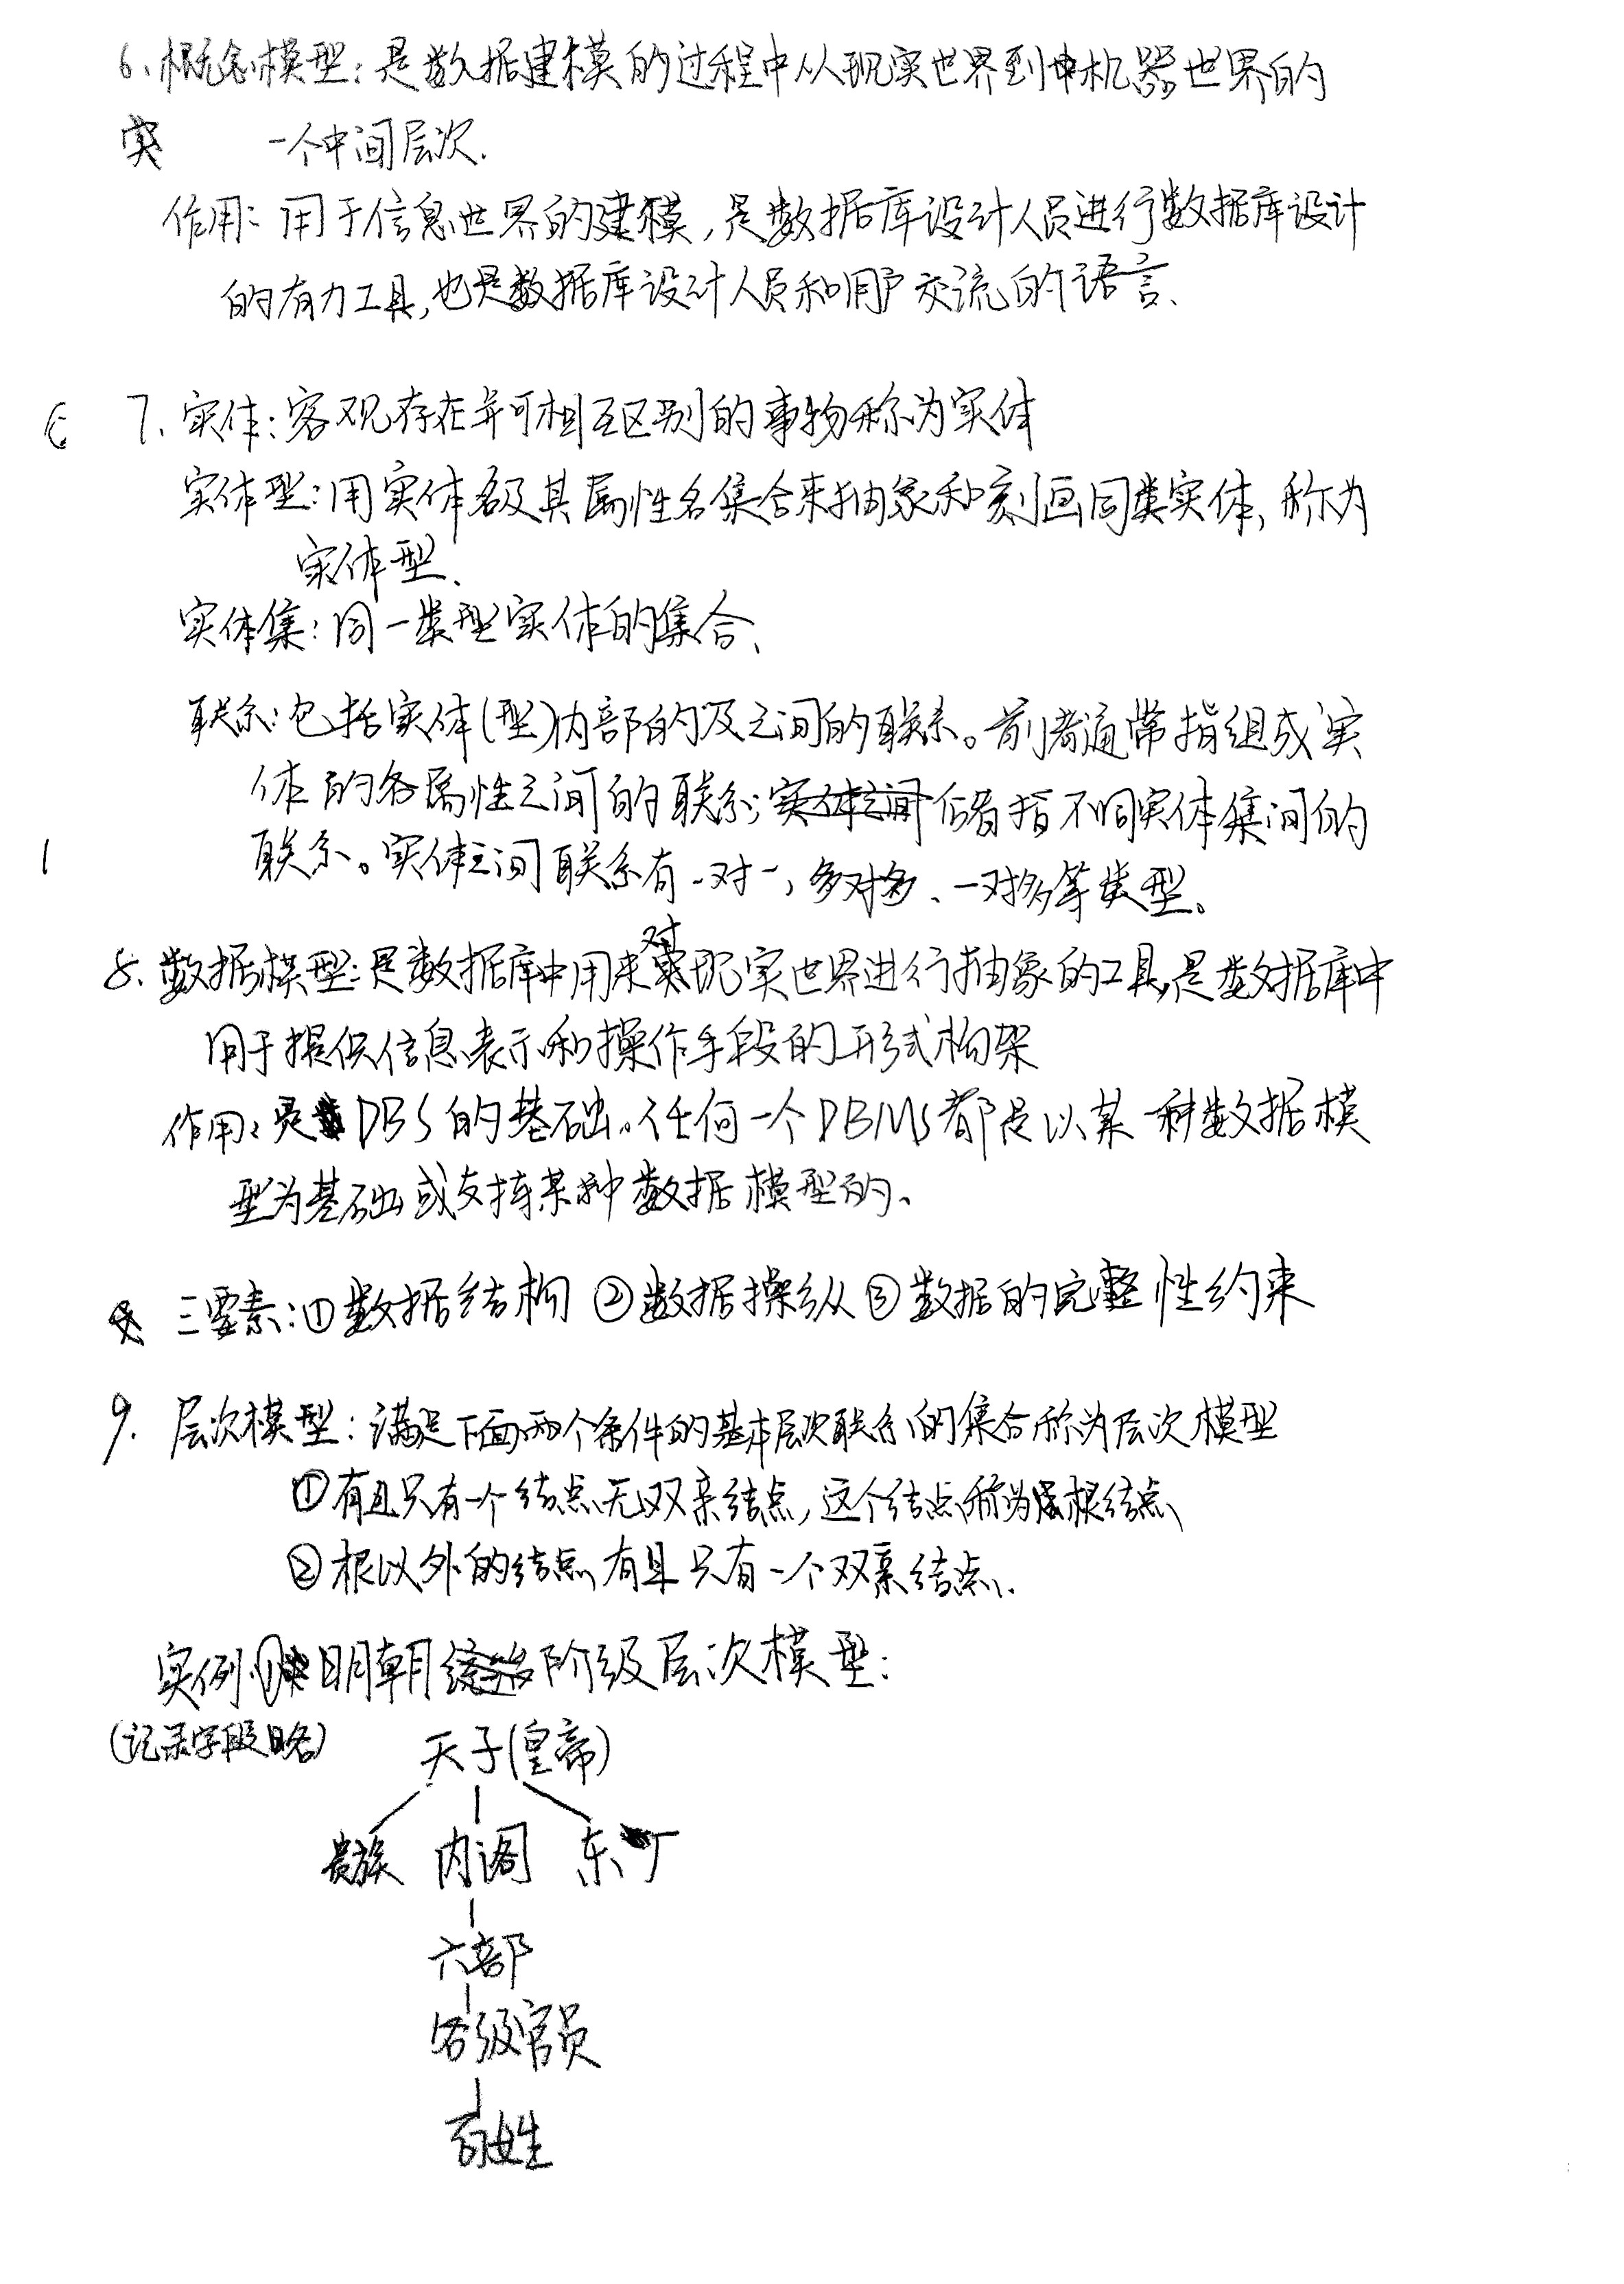 6、概念模型：是数据建模的过程中从现实世界到机器世界的
一个中间层次.
作用：用于信息世界的建模，是数据库设计人员进行数据库设计
的有力工具，也是数据库设计人员和用户交流的语言、
7、实体：客观存在并可相互区别的事物称为实体
实体型：用实体名及其属性名集合来抽象和刻画同类实体，称为
实体型、
实体集：同一类型实体的集合、
联系：包括实体(型)内部的及之间的联系。前者通常指组成实
体的各属性之间的联系；后者指不同实体集间的
联系。实体之间联系有一对一，多对多、一对多等类型。
8、数据模型：是数据库中用来对现实世界进行抽象的工具，是数据库中
用于提供信息表示和操作手段的形式构架
作用：是DBS的基础。任何一个DBMS都是以某一种数据模
型为基础或支持某种数据模型的、
三要素：①数据结构 ②数据操纵 ③数据的完整性约束
9. 层次模型：满足下面两个条件的基本层次联系的集合称为层次模型
①有且只有一个结点无双亲结点，这个结点称为根结点、
②根以外的结点有且只有一个双亲结点、
实例：明朝阶级层次模型：
(记录字段略)
天子(皇帝)
贵族 内阁 东厂
六部
各级官员
百姓